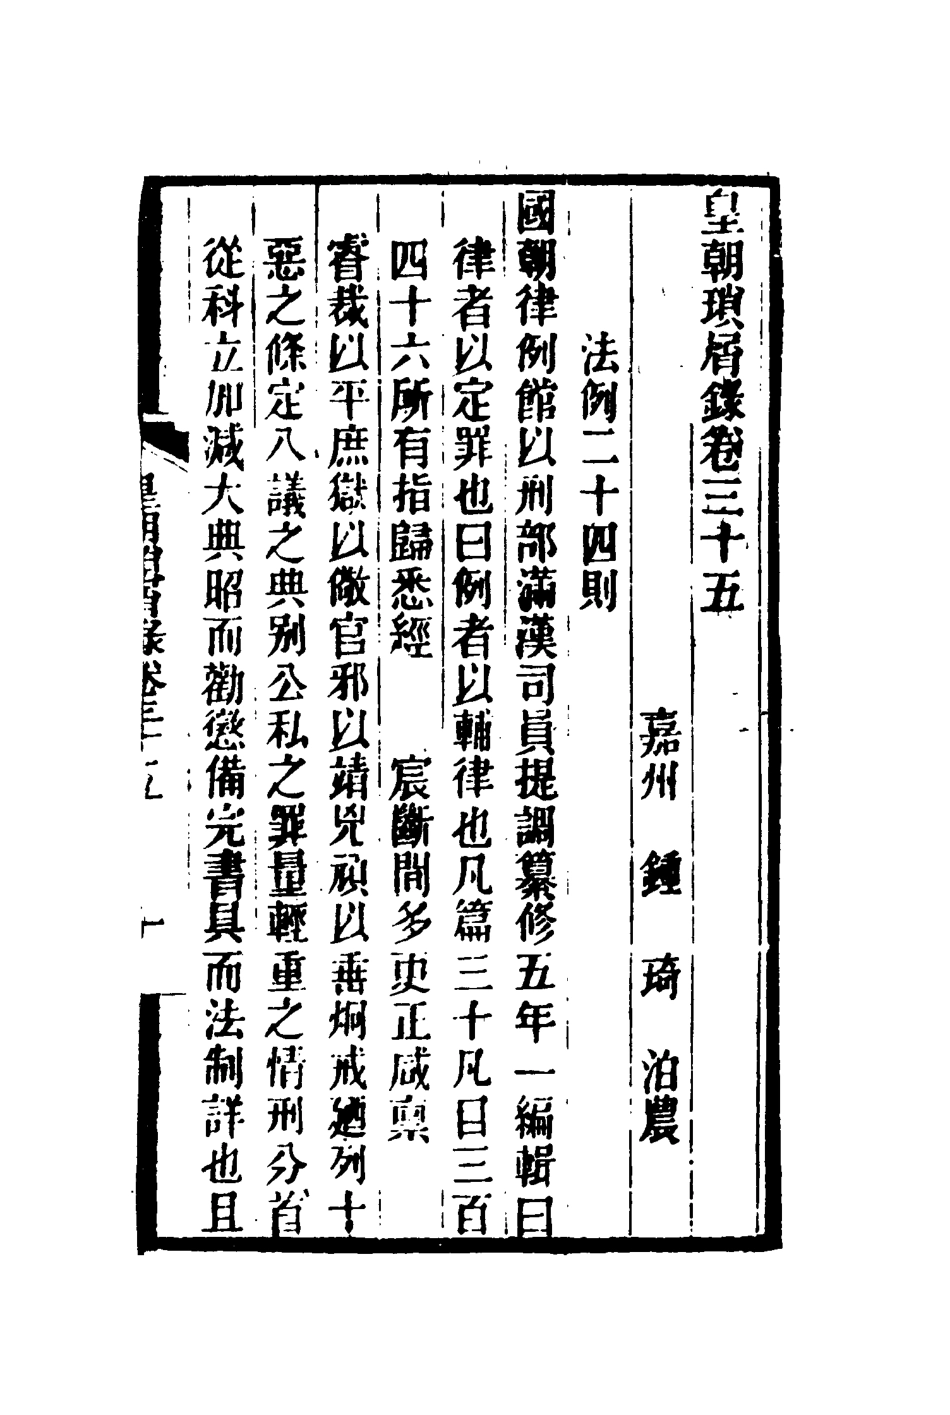 皇朝瑣屑錄卷三十五
嘉州 鍾 琦 泊農
法例二十四則
國朝律例館以刑部滿漢司員提調纂修五年一編輯曰
律者以定罪也曰例者以輔律也凡篇三十凡目三百
四十六所有指歸悉經 宸斷間多更正咸稟
睿裁以平庶獄以儆官邪以靖兇頑以垂炯戒廼列十
惡之條定八議之典别公私之罪量輕重之情刑分首
從科立加減大典昭而勸懲備完書具而法制詳也且
皇朝瑣屑錄卷三十五 一